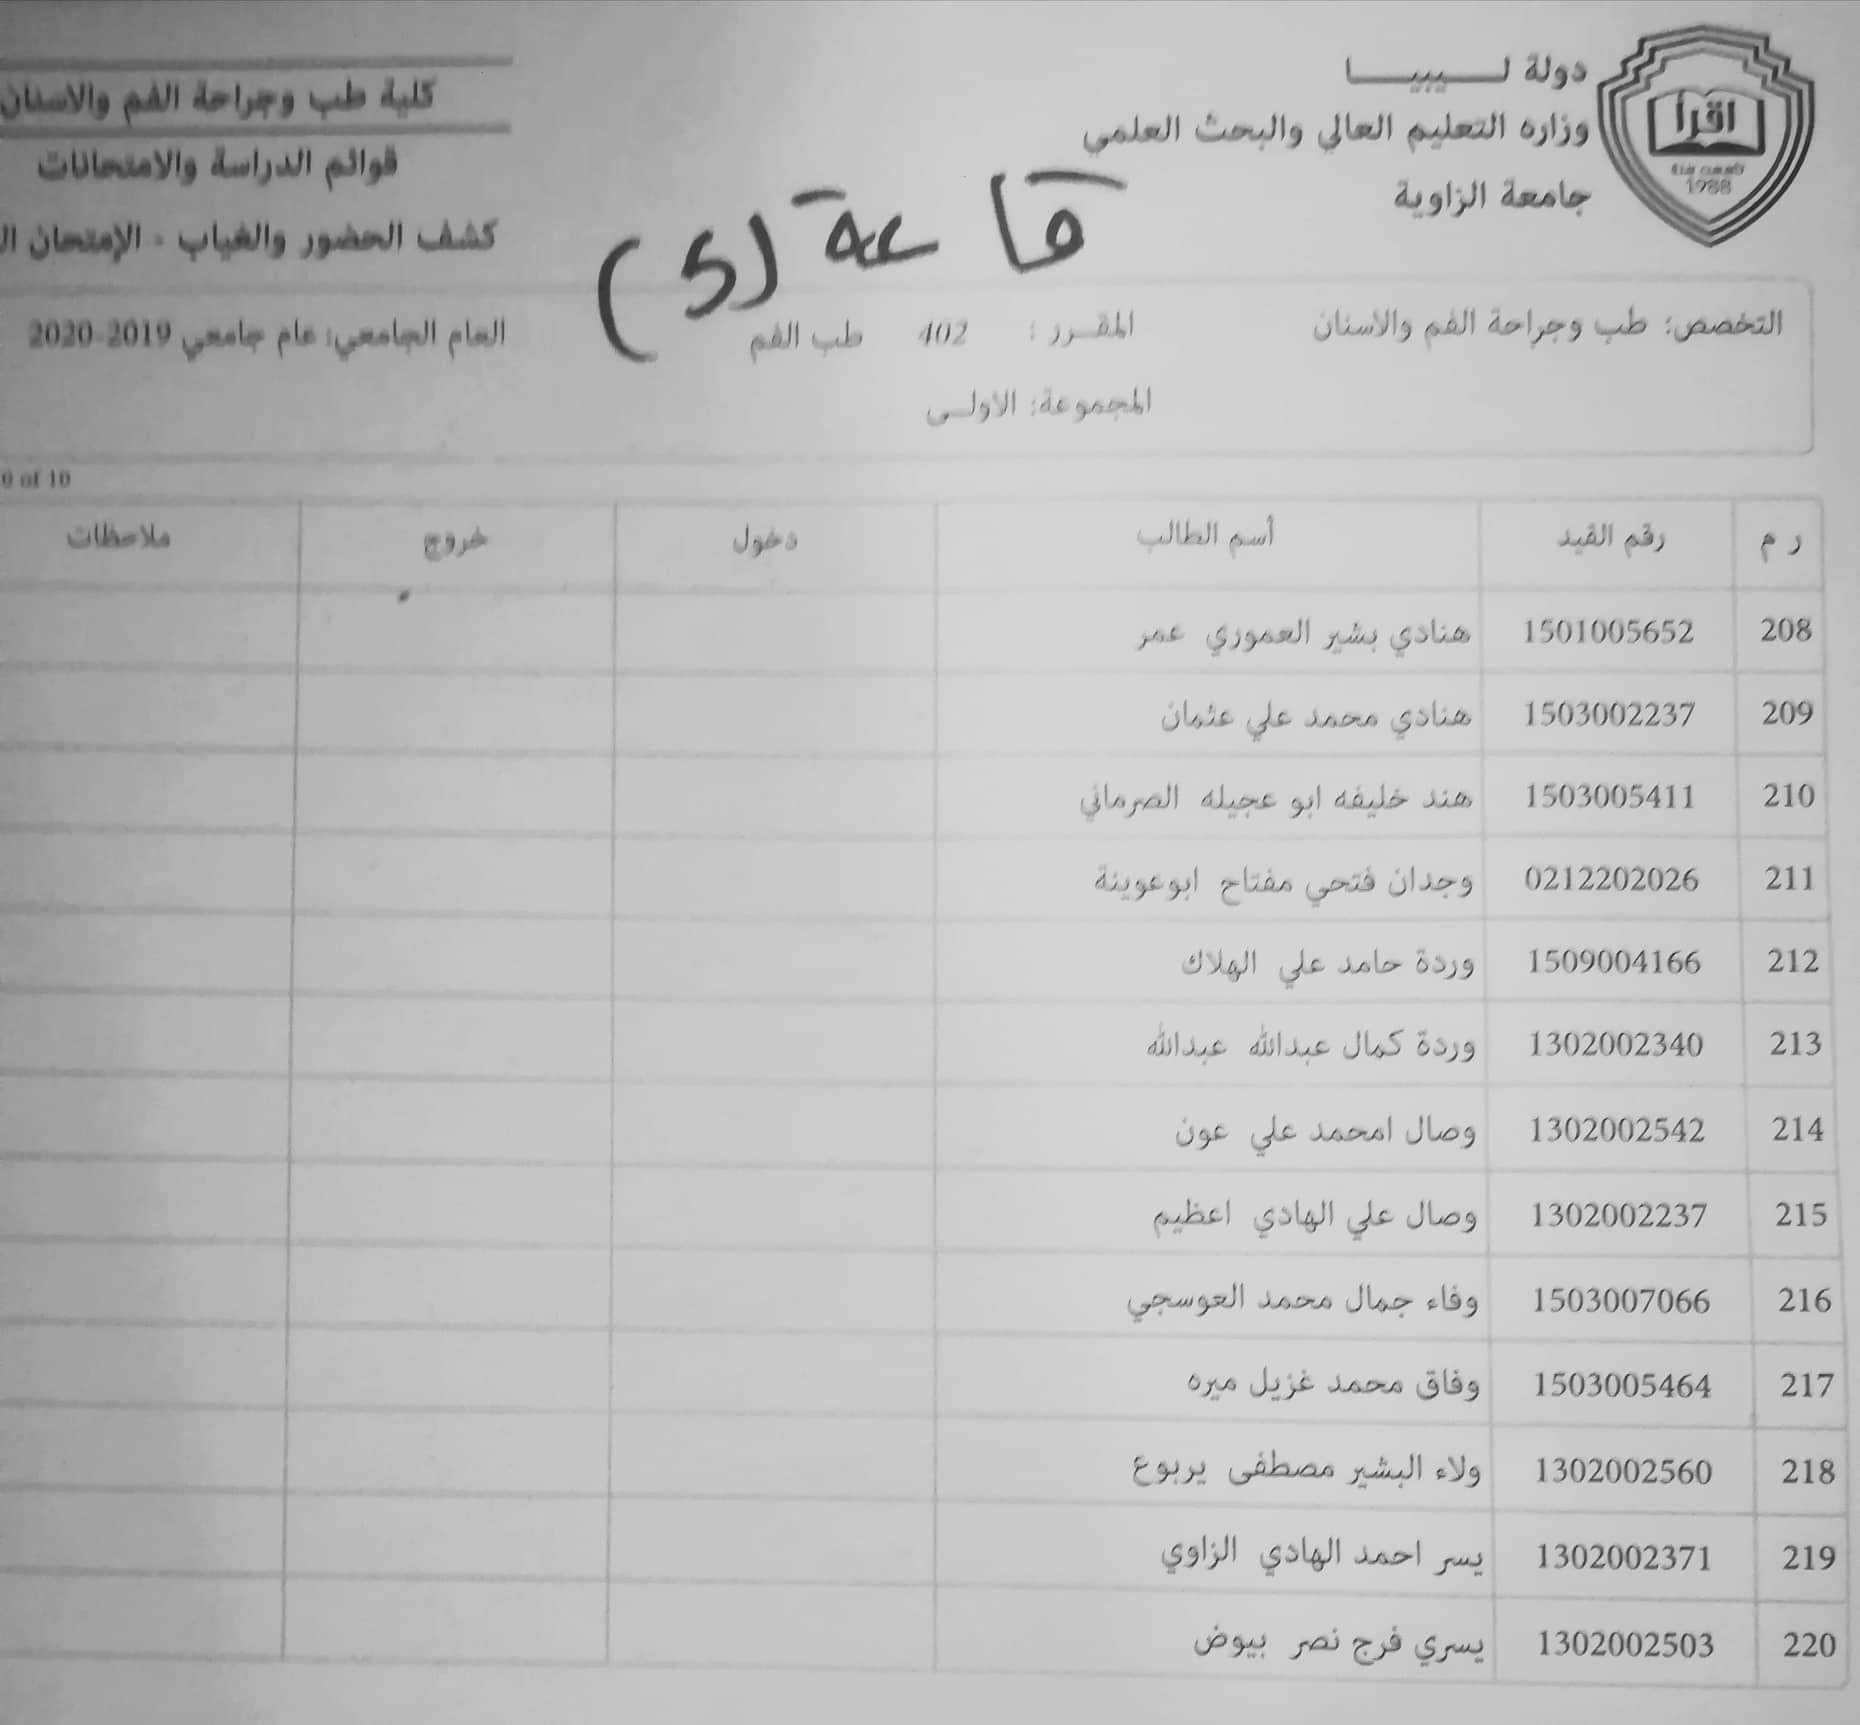 دولة لـــيبيـــا
وزاره التعليم العالي والبحث العلمي
جامعة الزاوية
اقرأ
1988
كلية طب وجراحة الفم والاسنان
قوائم الدراسة والامتحانات
كشف الحضور والغياب - الإمتحان
قاعة (5)
التخصص: طب وجراحة الفم والاسنان المقـرر : 402 طب الفم العام الجامعي: عام جامعي 2019-2020
المجموعة: الاولـى
0 of 10
ر م رقم القيد أسم الطالب دخول خروج ملاحظات
208 1501005652 هنادي بشير العموري عمر
209 1503002237 هنادي محمد علي عثمان
210 1503005411 هند خليفه ابو عجيله الصرماني
211 0212202026 وجدان فتحي مفتاح ابوعوينة
212 1509004166 وردة حامد علي الهلاك
213 1302002340 وردة كمال عبدالله عبدالله
214 1302002542 وصال امحمد علي عون
215 1302002237 وصال علي الهادي اعظيم
216 1503007066 وفاء جمال محمد العوسجي
217 1503005464 وفاق محمد غزيل ميره
218 1302002560 ولاء البشير مصطفى يربوع
219 1302002371 يسر احمد الهادي الزاوي
220 1302002503 يسري فرج نصر بيوض